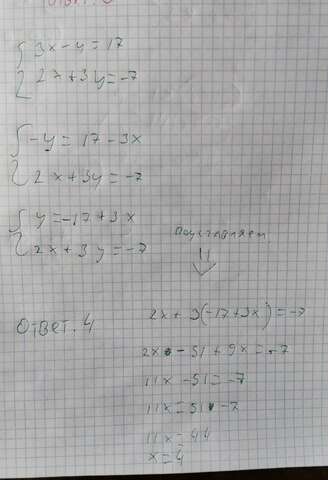 {3x - y = 17
{2x + 3y = -7
{-y = 17 - 3x
{2x + 3y = -7
{y = -17 + 3x
{2x + 3y = -7
подставляем
2x + 3(-17 + 3x) = -7
2x - 51 + 9x = -7
11x - 51 = -7
11x = 51 - 7
11x = 44
x = 4
ответ. 4